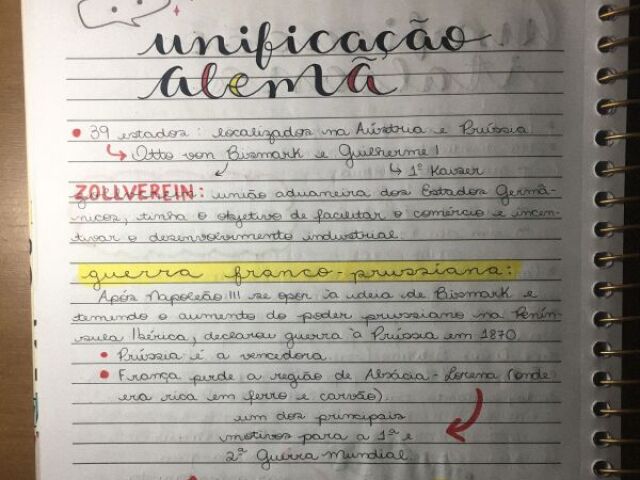 unificação
alemã
• 39 estados: localizados na Aústria e Prússia
Otto von Bismark e Guilherme I
1º Kaiser
ZOLLVEREIN: união aduaneira dos Estados Germâ-
nicos, tinha o objetivo de facilitar o comércio e incen-
tivar o desenvolvimento industrial.
guerra franco-prussiana:
Após Napoleão III se opor à ideia de Bismark e
temendo o aumento do poder prussiano na Penín-
sula Ibérica, declarou guerra à Prússia em 1870
• Prússia é a vencedora.
• França perde a região de Alsácia-Lorena (onde
era rica em ferro e carvão).
um dos principais
motivos para a 1ª e
2ª Guerra Mundial.